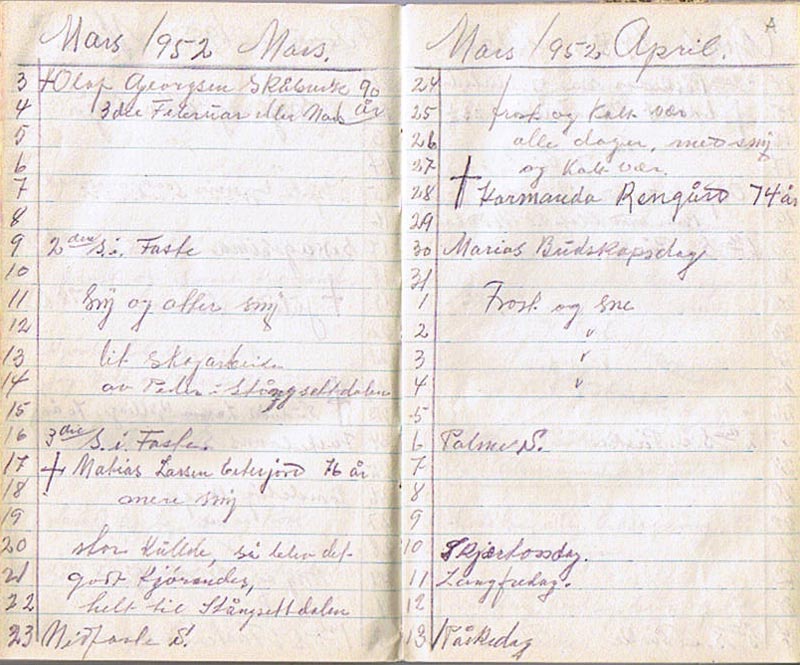 Mars 1952 Mars.
3 + Olaf Georgsen Skåbuvik 90
4 3die Februar eller Mars år
5
6
7
8
9 2den S. i. Faste
10
11 Snj og atter snj
12
13 lit skojarbeide
14 av Peder i Stångsettdalen
15
16 3die S. i. Faste.
17 + Matias Larsen 76 år
18 mere snj
19
20 stor Kullde, så blev det
21 godt Kjørandes,
22 helt til Stångsettdalen
23 Midfaste S.
Mars 1952 April.
24
25 frost og Kalt vær
26 alle dager, med snj
27 og Kalt vær.
28 + Harmanda Rengård 74 år
29
30 Marias Budskapsdag
31
1 Frost og sne
2 "
3 "
4 "
5
6 Palme S.
7
8
9
10 Skjærtorsdag.
11 Langfredag.
12
13 Påskedag